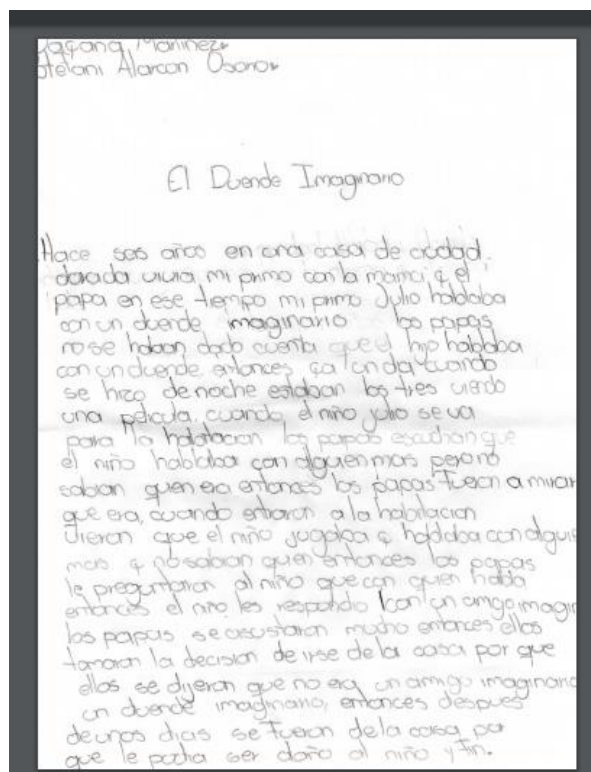 Dayana Martinez
Stefani Alarcon Osorio
El Duende Imaginario
Hace seis años en una casa de ciudad
dorada vivia mi primo con la mama y el
papa en ese tiempo mi primo Julio hablaba
con un duende imaginario los papas
no se habian dado cuenta que el hijo hablaba
con un duende, entonces ya un dia cuando
se hizo de noche estaban los tres viendo
una pelicula, cuando el niño julio se va
para la habitacion los papas escuchan que
el niño hablaba con alguien mas pero no
sabian quien era entonces los papas fueron a mirar
que era, cuando entraron a la habitacion
vieron que el niño jugaba y hablaba con alguie
mas y no sabian quien entonces los papas
le preguntaron al niño que con quien habla
entonces el niño les respondio con un amigo imagin
los papas se asustaron mucho entonces ellos
tomaron la decision de irse de la casa por que
ellos se dijeron que no era un amigo imaginario
un duende imaginario, entonces despues
de unos dias se fueron de la casa por
que le podia ser daño al niño y fin.